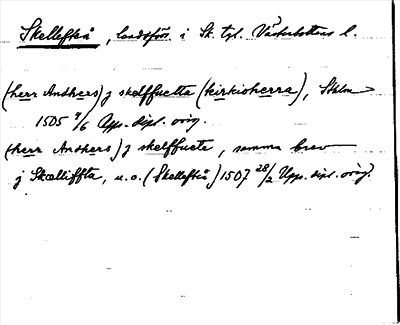 Skellefteå, landsförs. i Sk. tgl. Västerbottens l.
(herr Andhers) j skelffuetta (kirkioherra), Sthlm
1505 4/6 Upps. dipl. orig.
(herr Andhers) j skelffuete, samma brev
j Skælliffta, u.o. (Skellefteå) 1507 28/2 Upps. dipl. orig.